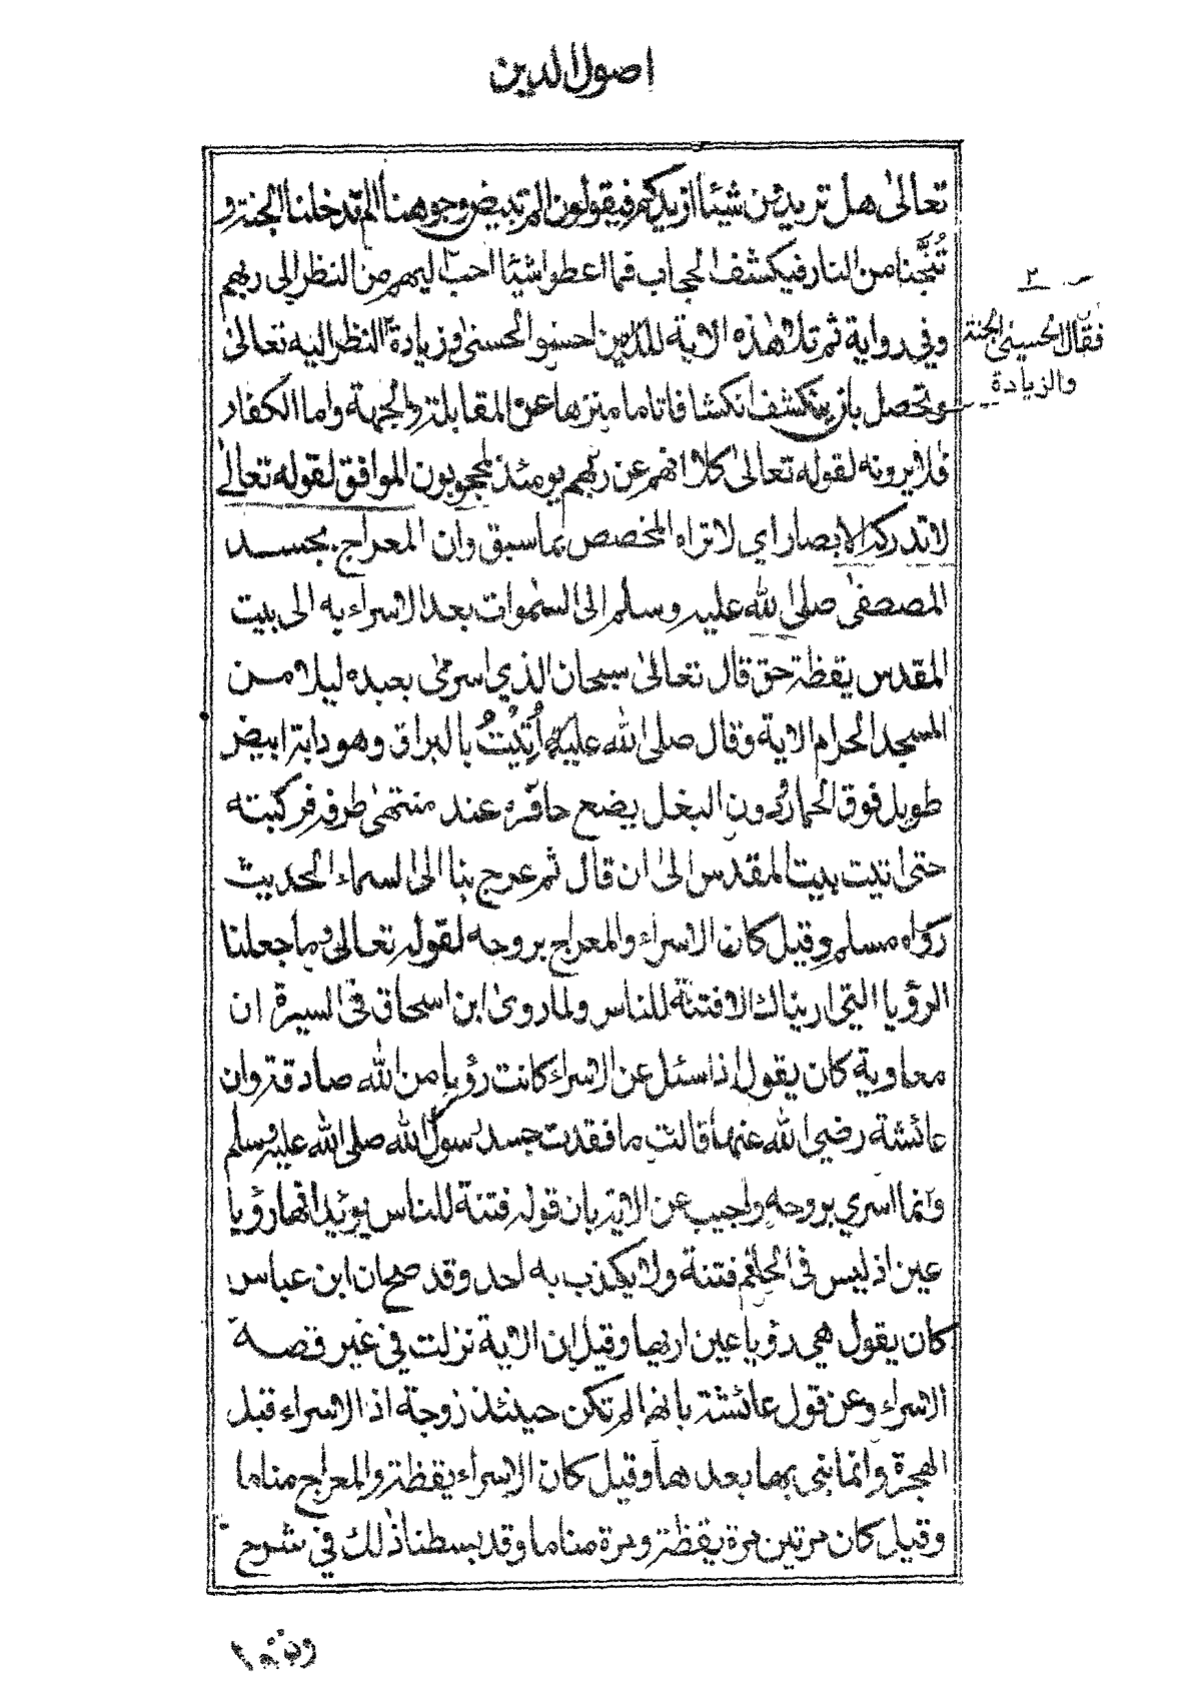 اصول الدين
تعالى هل تريدون شيئا ازيدكم فيقولون الم تبيض وجوهنا الم تدخلنا الجنة و
تُنَجِّنا من النار فيكشف الحجاب فما اعطوا شيئا احب اليهم من النظر الى ربهم
وفي رواية ثم تلا هذه الاية للذين احسنوا الحسنى وزيادة النظر اليه تعالى
فقال الحسنى الجنة
والزيادة
وتحصل بان ينكشف انكشافا تاما منزها عن المقابلة والجهة واما الكفار
فلا يرونه لقوله تعالى كلا انهم عن ربهم يومئذ لمحجوبون الموافق لقوله تعالى
لا تدركه الابصار اي لا تراه المخصص بما سبق وان المعراج بجسد
المصطفى صلى الله عليه وسلم الى السموات بعد الاسراء به الى بيت
المقدس يقظة حق قال تعالى سبحان الذي اسرى بعبده ليلا من
المسجد الحرام الاية وقال صلى الله عليه أُتِيْتُ بالبراق وهو دابة ابيض
طويل فوق الحمار ودون البغل يضع حافره عند منتهى طرفه فركبته
حتى اتيت بيت المقدس الى ان قال ثم عرج بنا الى السماء الحديث
رواه مسلم وقيل كان الاسراء والمعراج بروحه لقوله تعالى وما جعلنا
الرؤيا التى اريناك الا فتنة للناس ولما روى ابن اسحاق في السيرة ان
معاوية كان يقول اذا سئل عن الاسراء كانت رؤيا من الله صادقة وان
عائشة رضي الله عنها قالت ما فقدت جسد رسول الله صلى الله عليه وسلم
وانما اسري بروحه واجيب عن الاية بان قوله فتنة للناس يؤيد انها رؤيا
عين اذ ليس في الحلم فتنة ولا يكذب به احد وقد صح ان ابن عباس
كان يقول هي رؤيا عين اريها وقيل ان الاية نزلت في غير قصة
الاسراء وعن قول عائشة بانها لم تكن حينئذ زوجة اذ الاسراء قبل
الهجرة وانما بنى بها بعدها وقيل كان الاسراء يقظة والمعراج مناما
وقيل كان مرتين مرة يقظة ومرة مناما وقد بسطنا ذلك في شرح